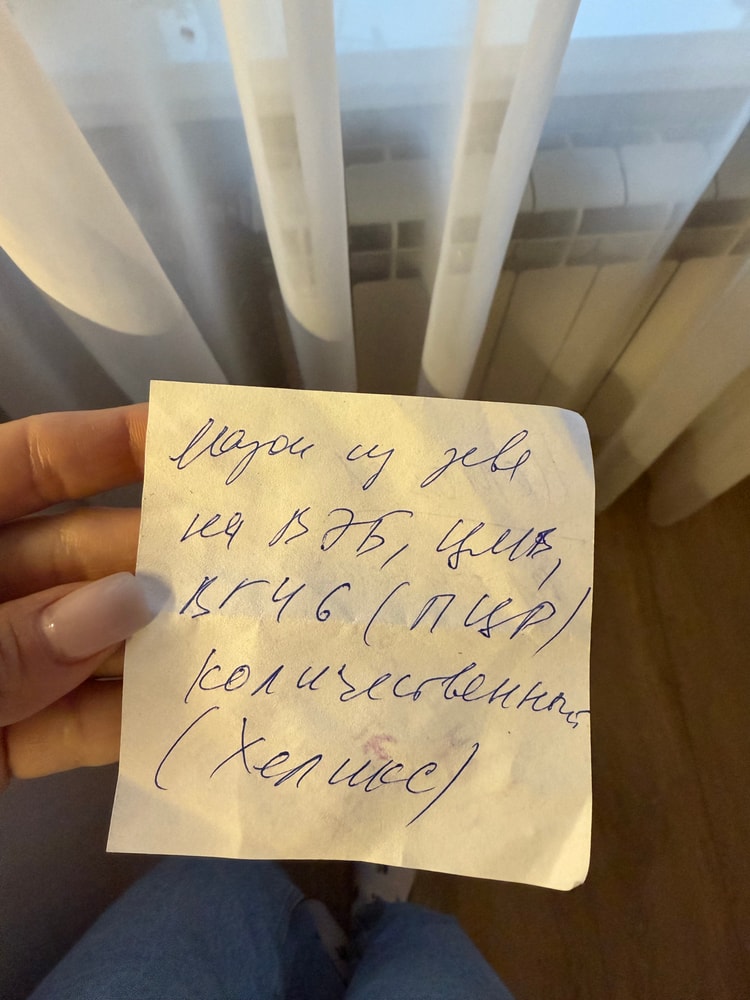 Мазок из зева
на ВЭБ, ЦМВ,
ВГЧ6 (ПЦР)
количественный
(Хеликс)